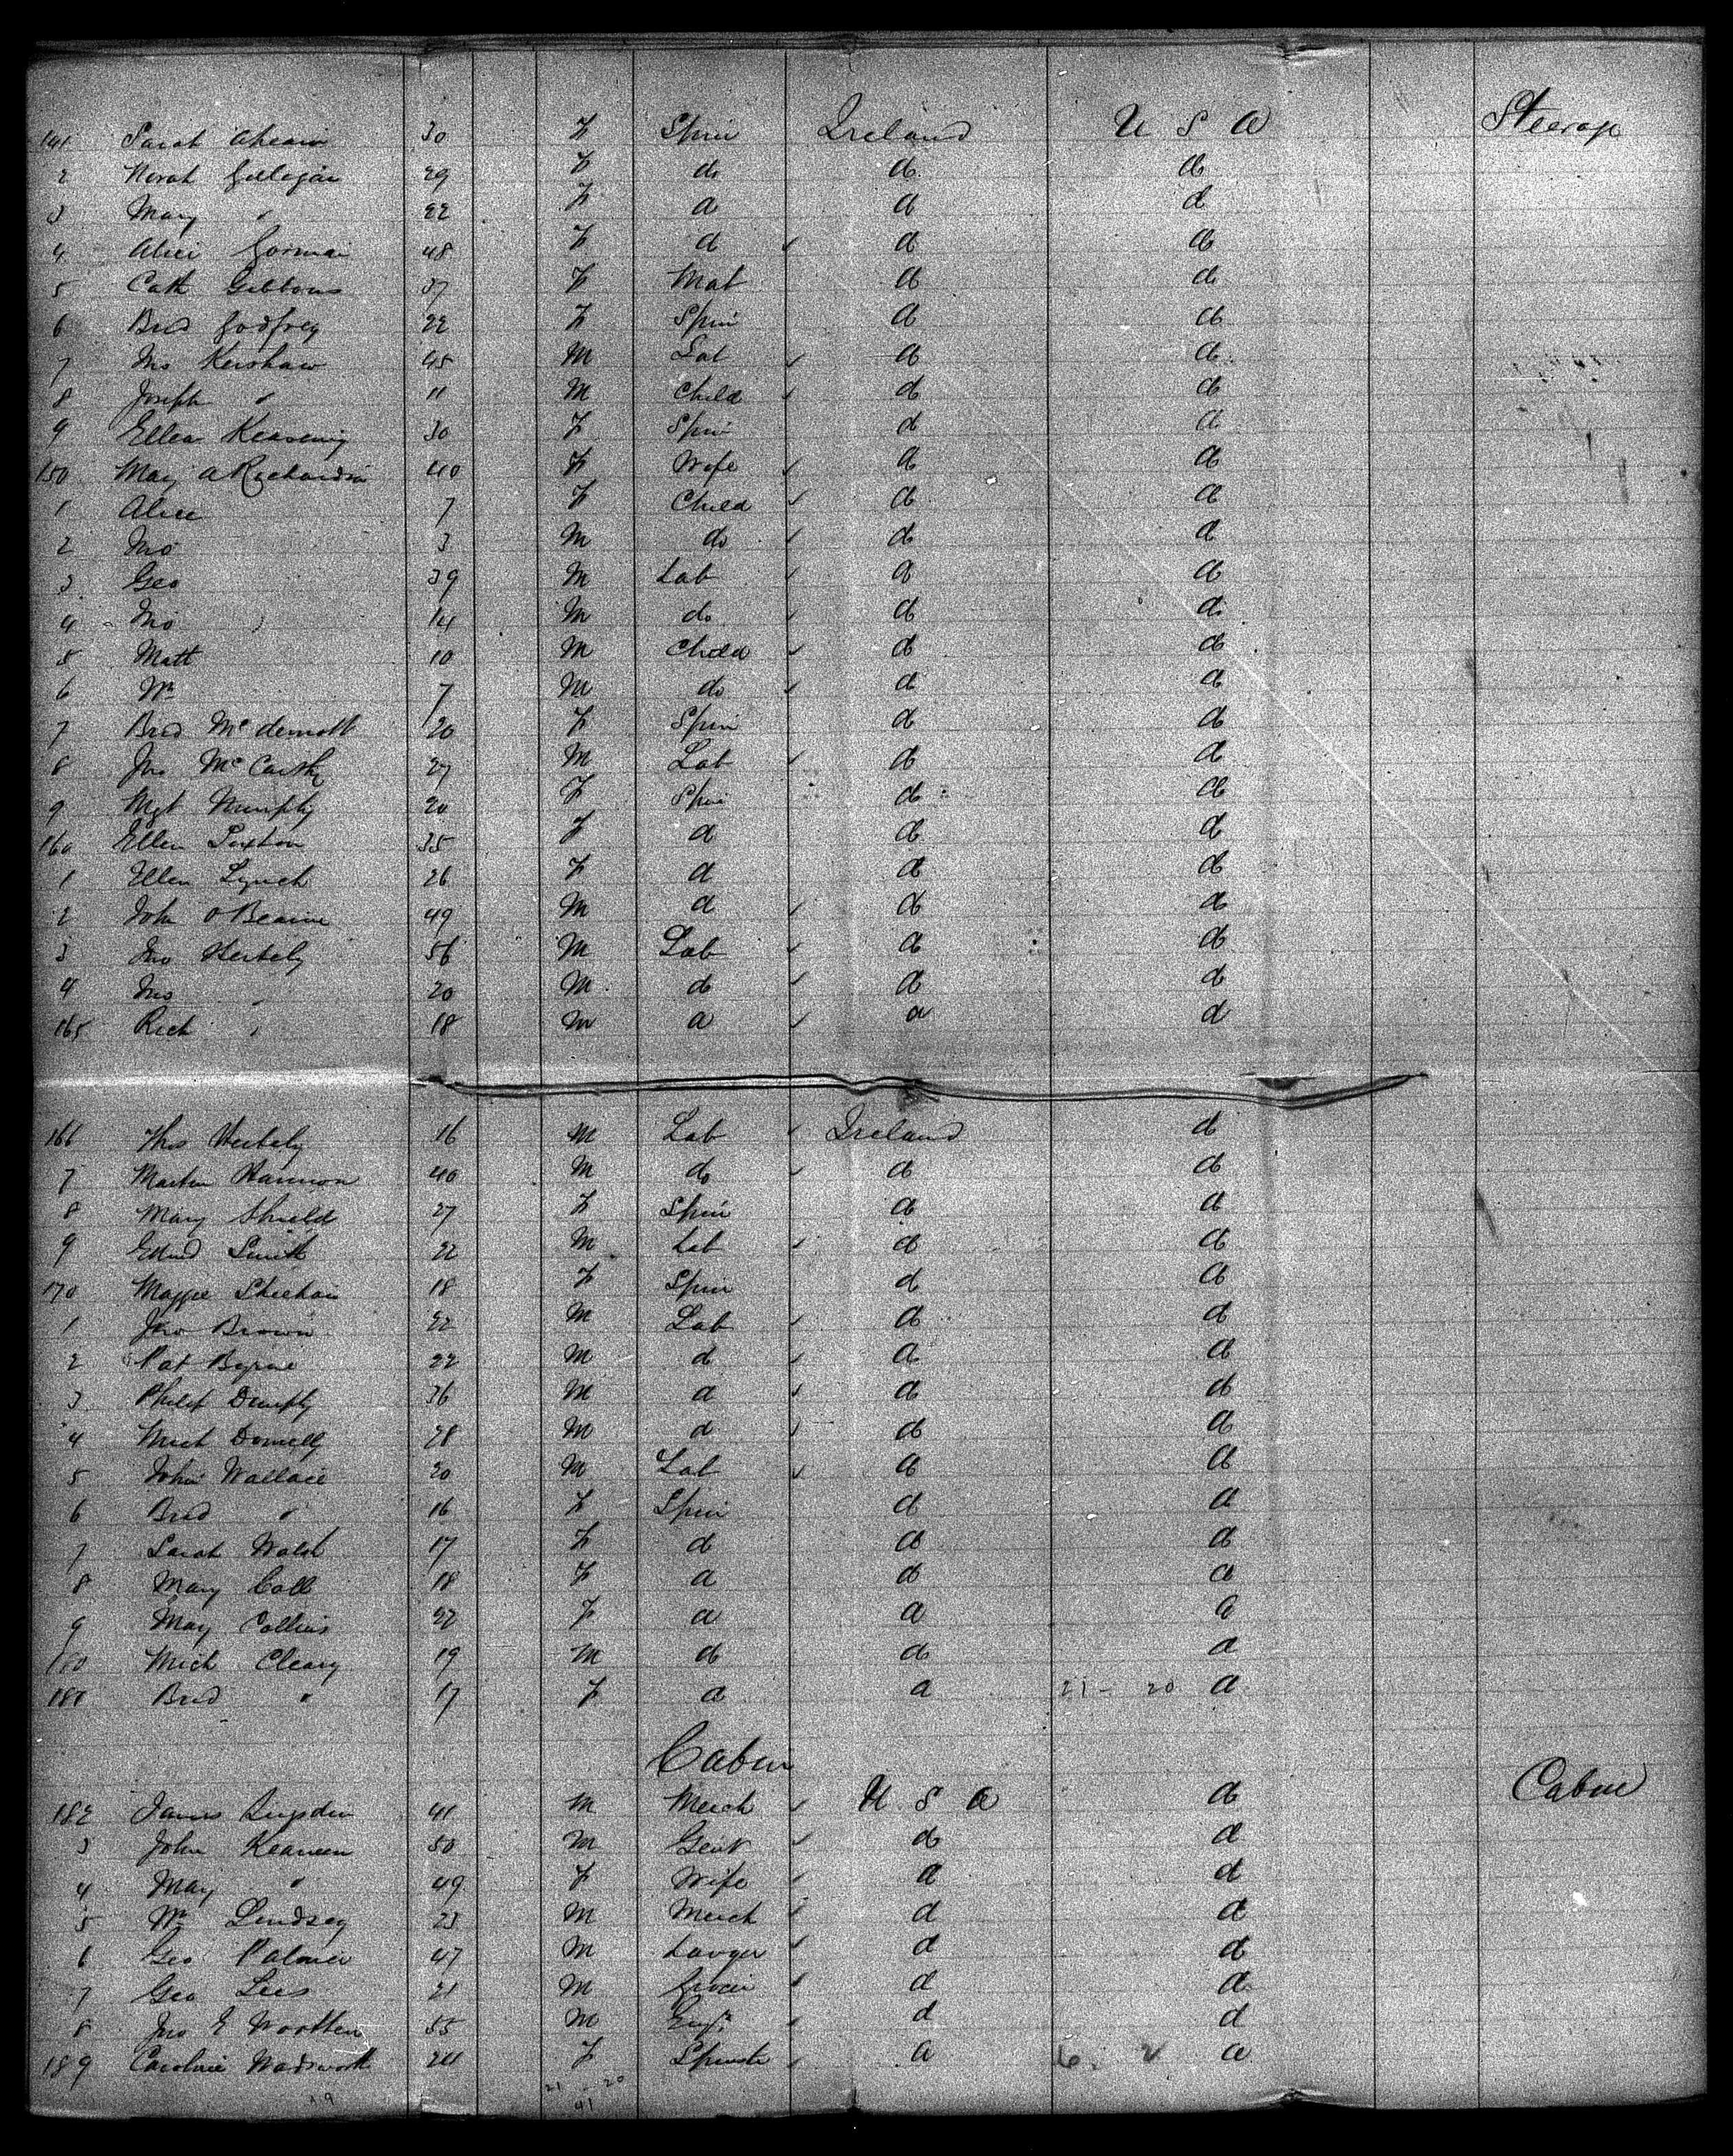 141 Sarah Ahearn 30 F Spin Ireland U S A Steerage
2 Norah Gilligan 29 F do do do
3 Mary " 22 F do do do
4 Alice Gorman 48 F do do do
5 Cath Gibbons 37 F Mat do do
6 Brid Godfrey 22 F Spin do do
7 Jno Kershaw 45 M Lab do do
8 Joseph " 11 M Child do do
9 Ellen 30 F Spin do do
150 Mary A Richardson 40 F Wife do do
1 Alice 7 F Child do do
2 Jno 3 M do do do
3 Geo 39 M Lab do do
4 Jno " 14 M do do do
5 Matt 10 M Child do do
6 Wm 7 M do do do
7 Brid McDermott 20 F Spin do do
8 Jno McCarthy 27 M Lab do do
9 Mgt Murphy 20 F Spin do do
160 Ellen Sexton 35 F do do do
1 Ellen Lynch 26 F do do do
2 John O'Bearne 49 M do do do
3 Jno Herbely 56 M Lab do do
4 Jno " 20 M do do do
165 Rich " 18 M do do do
166 Thos Herbely 16 M Lab Ireland do
7 Martin Hannon 40 M do do do
8 Mary Shield 27 F Spin do do
9 Edmd Smith 22 M Lab do do
170 Maggie Sheehan 18 F Spin do do
1 Jno Brown 22 M Lab do do
2 Pat Byrne 22 M do do do
3 Philip Dumphy 36 M do do do
4 Mich Donnelly 28 M do do do
5 John Wallace 20 M Lab do do
6 Brid " 16 F Spin do do
7 Sarah Walsh 17 F do do do
8 Mary Coll 18 F do do do
9 Mary Collins 22 F do do do
180 Mich Cleary 19 M do do do
181 Brid " 17 F do do 21 - 20 do
Cabin
182 James Lumsden 41 M Merch U S A do Cabin
3 John Kearneen 50 M Gent do do
4 Mary " 49 F Wife do do
5 Wm Lindsay 23 M Merch do do
6 Geo Palmer 47 M Lawyer do do
7 Geo Lees 21 M Grocer do do
8 Jno E Wootten 55 M Engr do do
189 Caroline Wadsworth 24 F Spinster do 6. 2 do
21 - 20
41